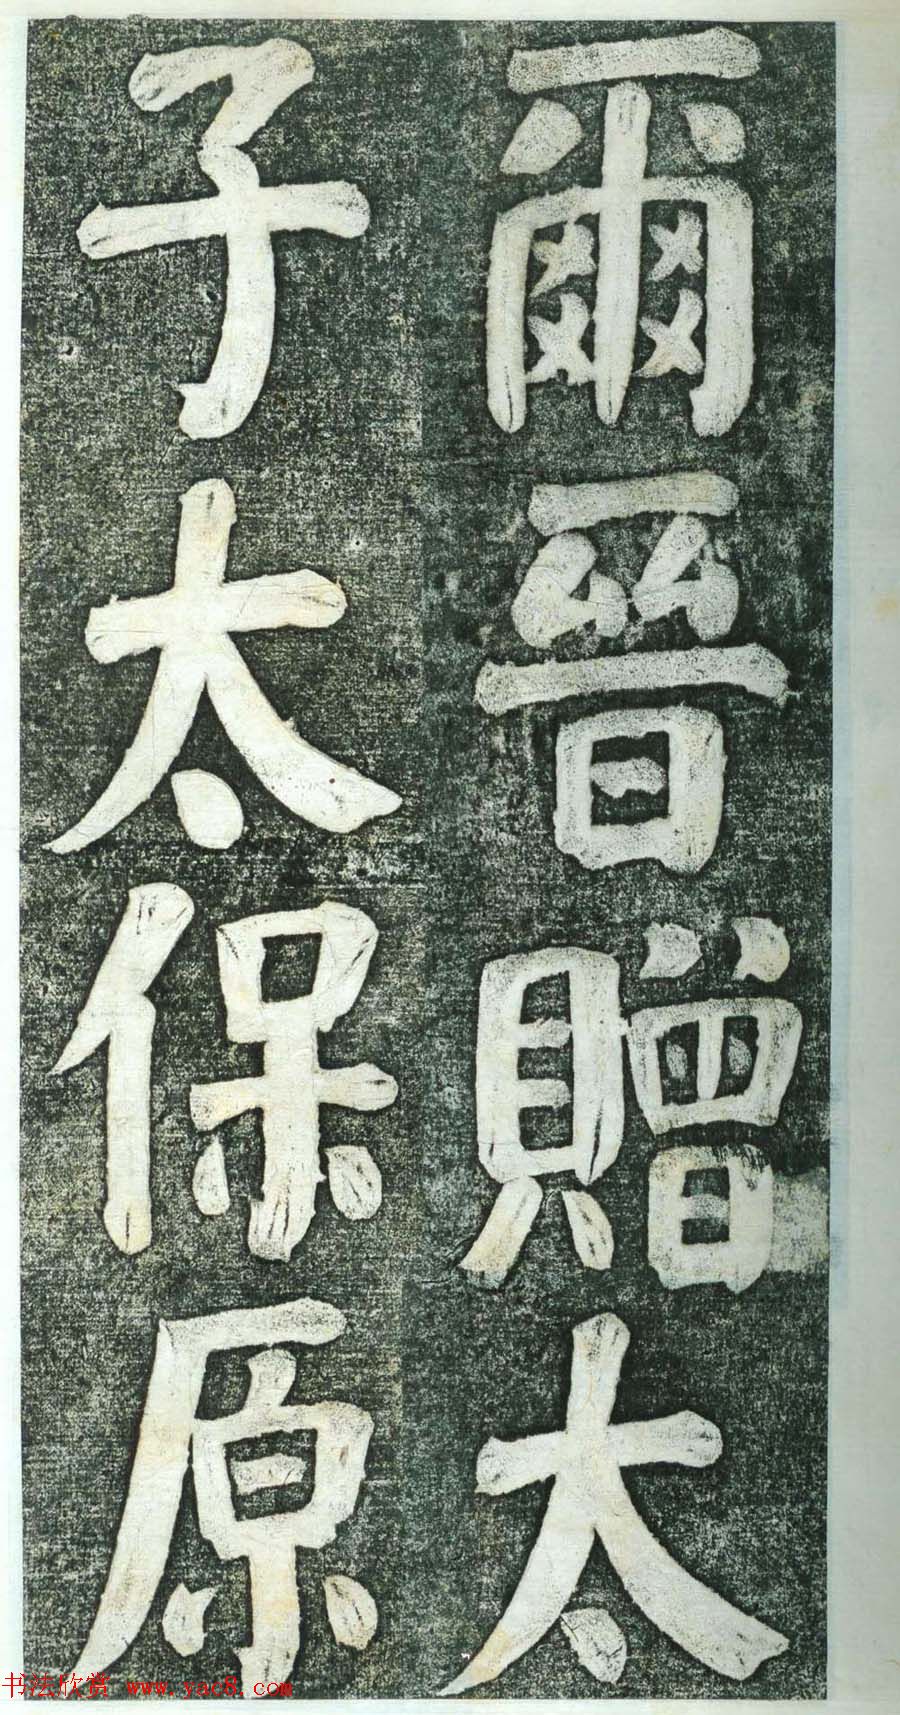 爾晉贈太
子太保原
书法欣赏 www.yac8.com